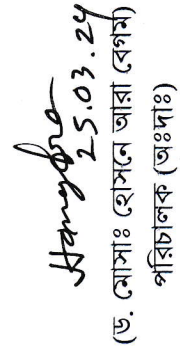 25.03.24
(ড. মোসাঃ হোসনে আরা বেগম)
পরিচালক (অঃদাঃ)